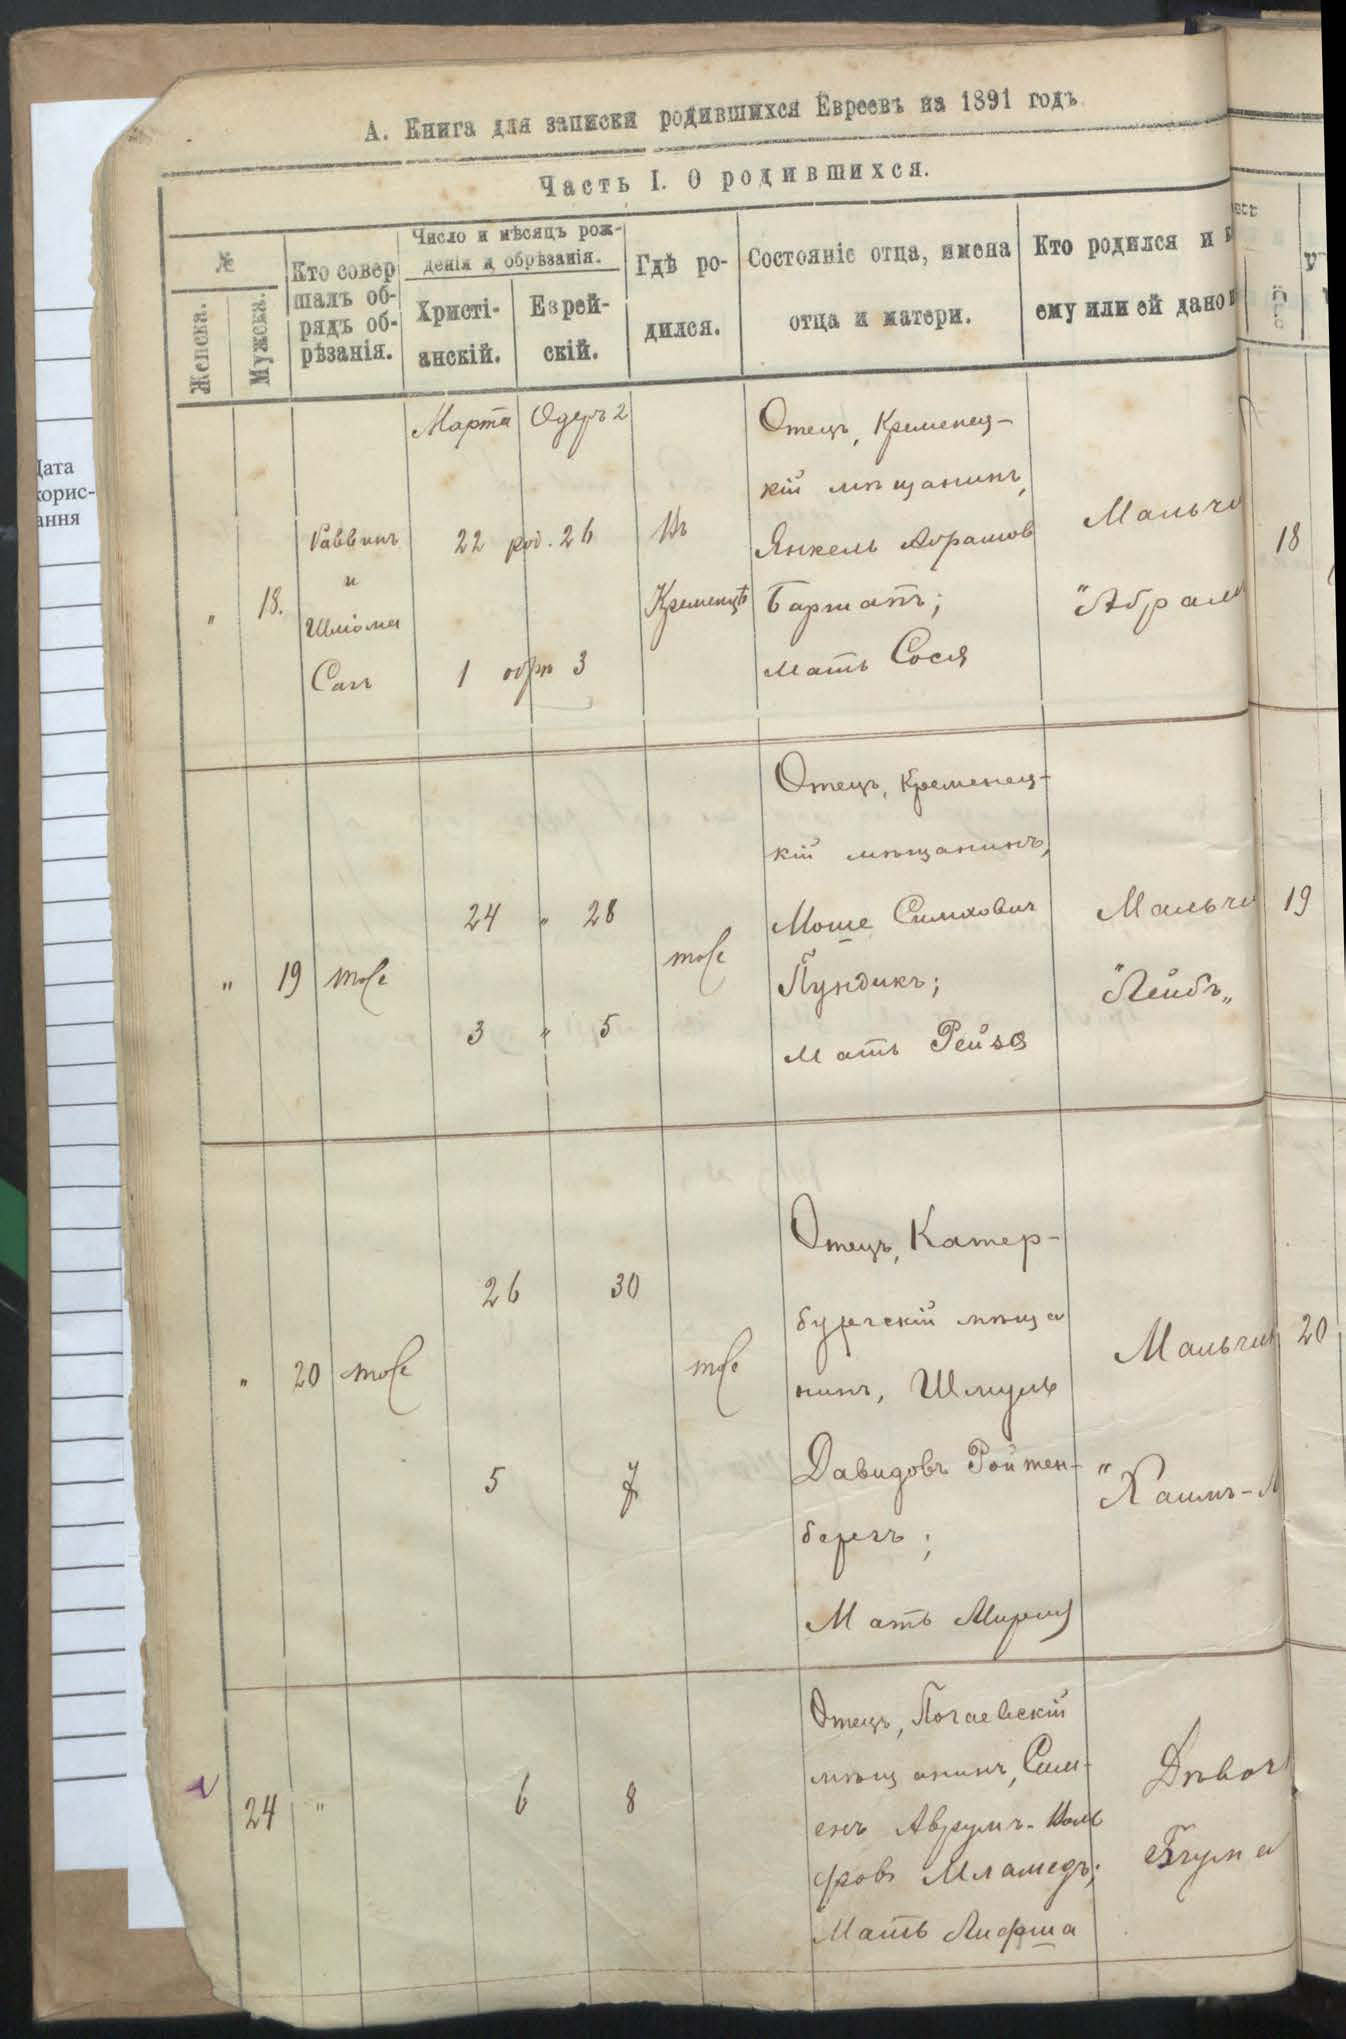 А. Книга для записки родившихся Евреевъ на 1891 годъ
Часть I. О родившихся.
№
Женска.
Мужска.
Кто совер
шалъ об-
рядъ об-
рѣзанія.
Число и мѣсяцъ рож-
денія и обрѣзанія.
Христі-
анскій.
Еврей-
скій.
Гдѣ ро-
дился.
Состояніе отца, имена
отца и матери.
Кто родился и
ему или ей дано
Дата
корис-
ання
"
18.
Раввинъ
и
Шліома
Сагъ
Марта
Одеръ 2
22 род. 26
1 обрѣ 3
Въ
Кременцѣ
Отецъ, Кременец-
кій мѣщанинъ,
Янкель Абрамов
Бармакъ;
мать Сося
Мальчи
"Абрам
18
"
19
тоже
24 " 28
3 " 5
тоже
Отецъ, Кременец-
кій мѣщанинъ,
Моше Симхович
Пундикъ;
Мать Рейзя
Мальчи
"Лейбъ„
19
"
20
тоже
26
30
5
7
тоже
Отецъ, Катер-
бургскій мѣща
нинъ, Шмуль
Давидовъ Ройтен-
бергъ;
Мать Мирля
Мальчик
"Хаимъ-
20
24
"
6
8
Отецъ, Почаевскій
мѣщанинъ, Сим-
енъ Аврумъ-Воль
фовъ Мламедъ;
Мать Лифша
Дѣвоч